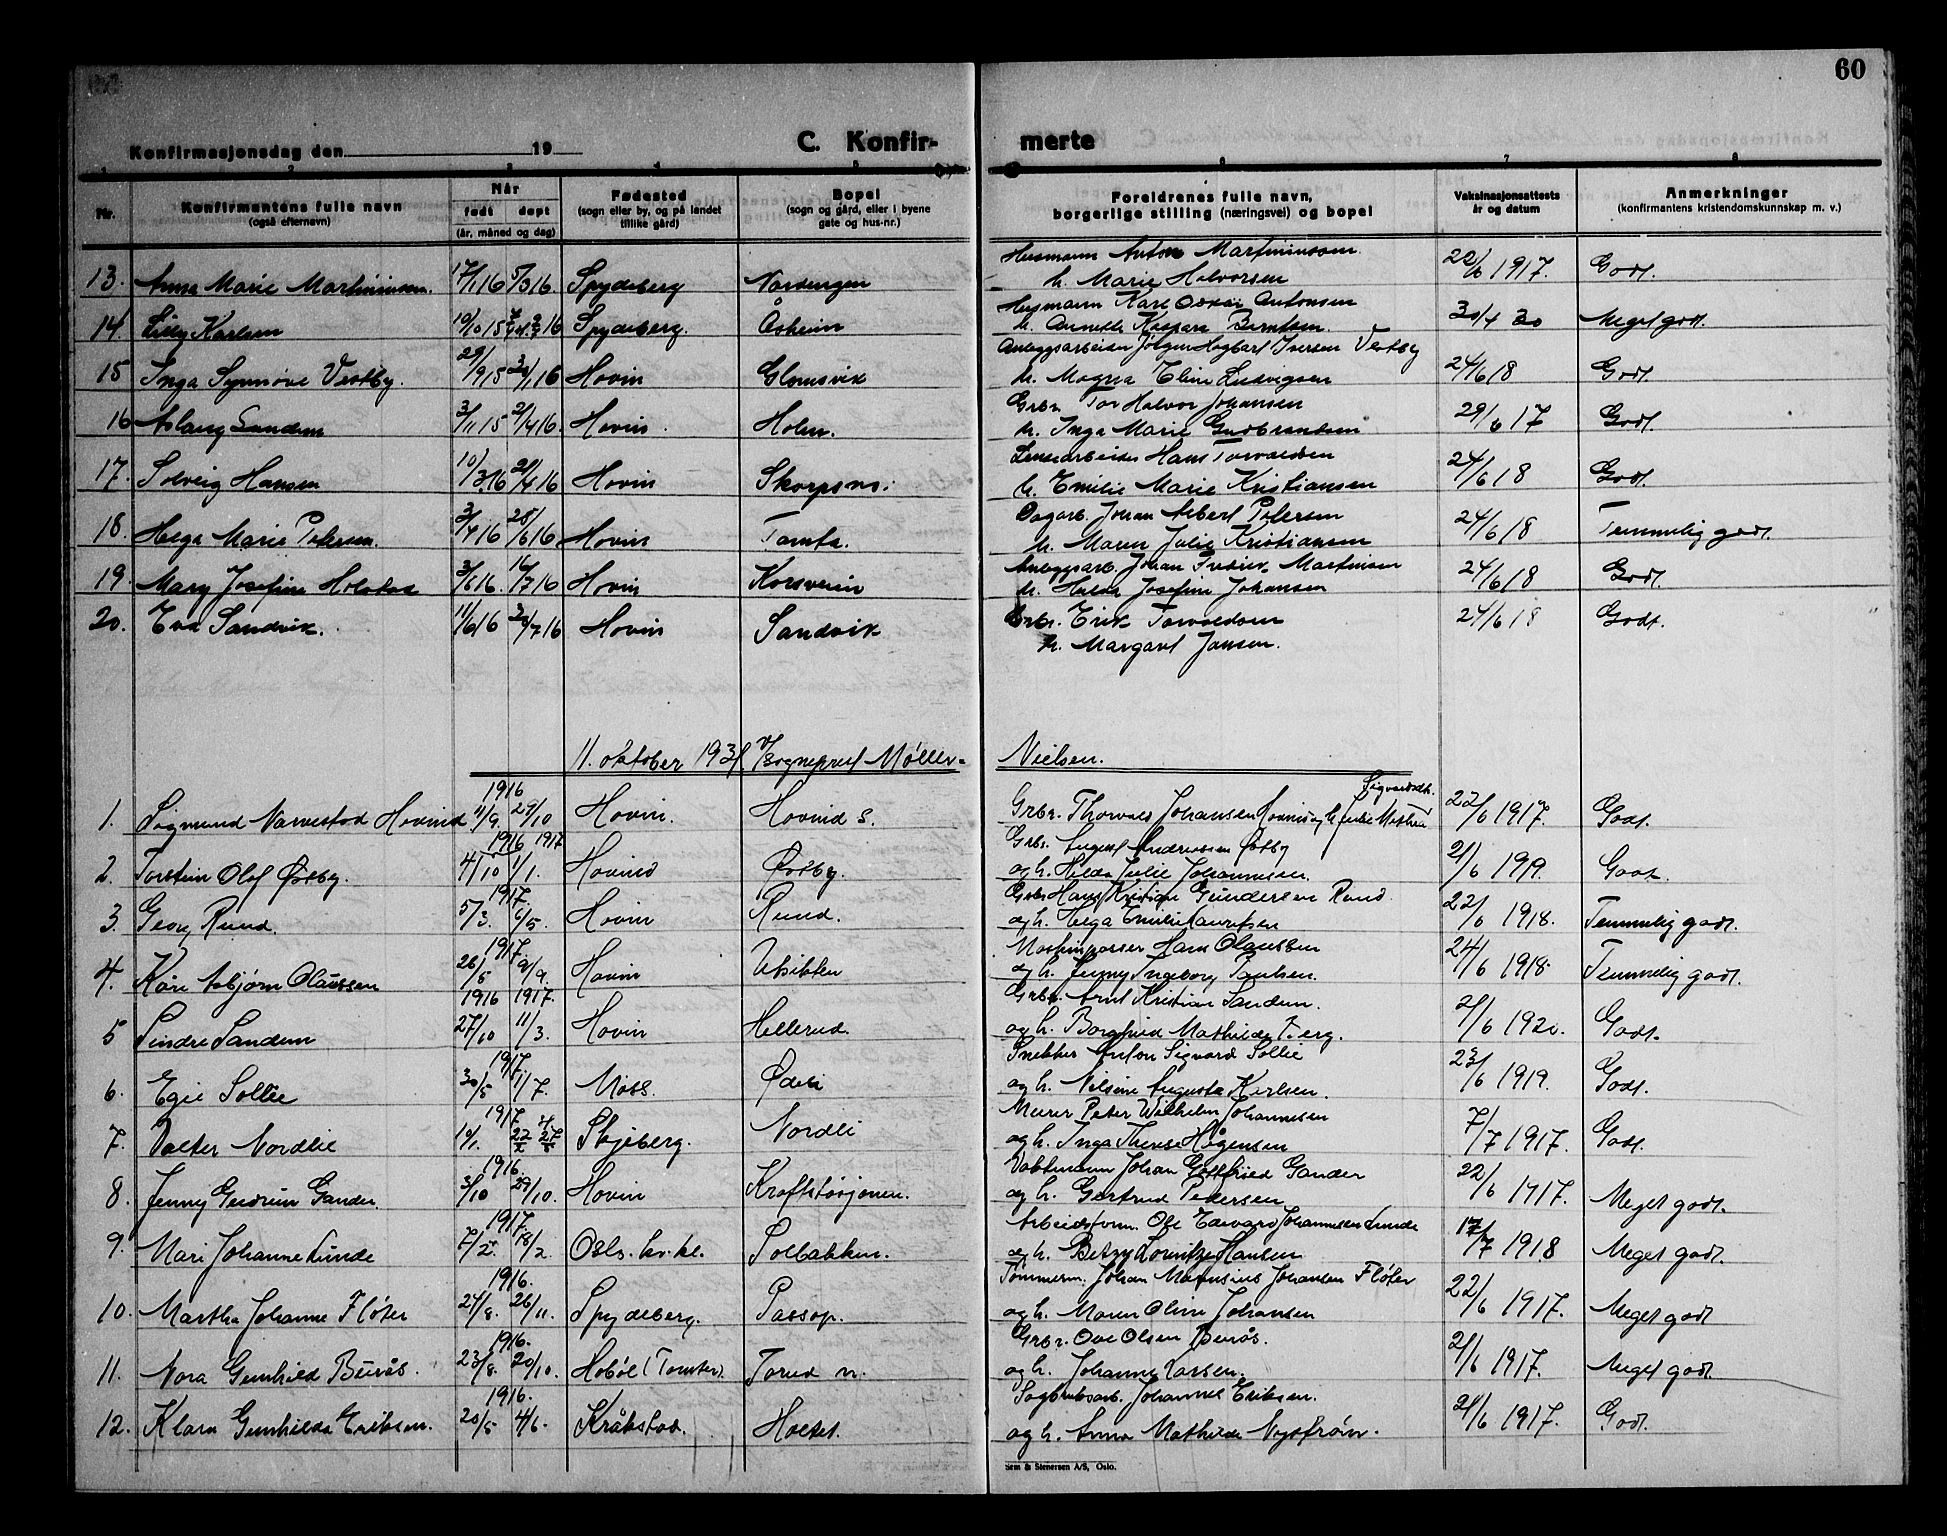 60
Konfirmasjonsdag den 19
C. Konfir-
merte
1 2 3 4 5 6 7 8
Nr.
Konfirmantens fulle navn
(også efternavn)
Når
født døpt
(år, måned og dag)
Fødested
(sogn eller by, og på landet
tillike gård)
Bopel
(sogn og gård, eller i byene
gate og hus-nr.)
Foreldrenes fulle navn,
borgerlige stilling (næringsvei) og bopel
Vaksinasjonsattests
år og datum
Anmerkninger
(konfirmantens kristendomskunnskap m. v.)
Husmann Anton Martiniussen
13. Anna Marie Martiniussen. 17/1 16 5/3 16 Spydeberg Nordengen h. Marie Halvorsen 22/6 1917. Godt.
Husmann Karl Oskar Antonsen
14. Lilly Karlsen 19/10 15 16 Spydeberg. Åsheim h. Kaspara Berntsen. 30/4 30 Meget godt.
Anleggsarbeider Jørgen Hagbart Iversen Vestby
15 Inga Synnøve Vestby. 29/9 15 30/1 16 Hovin Glomsvik h. Magna Eline Ludvigsen 24/6 18 Godt.
Grbr. Tor Halvor Johansen
16 Aslaug Sandem 3/11 15 2/4 16. Hovin. Holm. h. Inga Marie Gudbrandsen 29/6 17 Godt.
Lensearbeider Hans Torvaldsen
17. Solveig Hansen 10/3 16 24/4 16 Hovin Skorpsns. h. Emilie Marie Kristiansen 24/6 18 Godt.
Dagarb. Johan Albert Petersen
18. Helga Marie Petersen. 3/4 16 25/6 16 Hovin Tomta. h. Maren Julie Kristiansen 24/6 18 Temmelig godt.
Anleggsarb. Johan Fredrik Martinsen
19. Mary Josefine Holstad 3/6 16. 16/7 16 Hovin Korsveien h. Hulda Josefine Johansen 24/6 18 Godt.
20. Eva Sandvik. 11/6 16 30/7 16 Hovin Sandvik Grbr. Erik Torvaldsen 24/6 18 Godt.
h. Margart Jansen.
11. oktober 1931 v/ Sogneprest Møller-
Nielsen.
1916 Sigvardsdtr.
1. Sigmund Narvestad Hovind 11/9. 29/10 Hovin. Hovind S. Grbr. Thorvald Johansen Hovind og h. Julie Mathea 22/6 1917. Godt.
1916 1917 Grbr. August Andreassen Østby
2. Torstein Olaf Østby. 4/10 1/1. Hovind Østby. og h. Hilda Julie Johannesen 21/6 1919. Godt.
1917. Grbr. Hans Kristian Gundersen Rund
3. Georg Rund. 5/3. 6/5. Hovin Rund. og h. Helga Emilie Lauritsen 22/6 1918. Temmelig godt.
1917. Maskinpasser Hans Olaussen
4. Kåre Asbjørn Olaussen 26/5 9/9. Hovin Utsikten og h. Jenny Ingeborg Paulsen. 24/6 1918. Temmelig godt.
1916 1917. Grbr. Arnt Kristian Sandem.
5 Sindre Sandem 27/10 11/3. Hovin Hellerud. og h. Borghild Mathilde Berg. 21/6 1920. Godt.
1917. Snekker Anton Sigvard Sollie
6. Egil Sollie 30/5 1/7. Moss. Ødeli og h. Nilsine Augusta Karlsen. 23/6 1919. Godt.
1917 Murer Peter Wilhelm Johannesen
7. Valter Nordlie 10/1. Skjeberg. Nordli og h. Inga Therese Hågensen 7/7 1917. Godt.
1916. Vaktmann Johan Gottfried Gander
8. Jenny Gudrun Gander 3/10 29/10. Hovin Kraftstasjonen. og h. Gertrud Pedersen 22/6 1917. Meget godt.
1917. Arbeidsform. Ole Edvard Johannesen Lunde
9. Mari Johanne Lunde 7/2. 18/2. Oslo. kv. kl. Solbakken. og h. Betzy Lovitze Hansen 17/7 1918 Meget godt.
1916. Tømmerm. Johan Martinius Johansen Fløter
10. Martha Johanne Fløter 24/8. 26/11. Spydeberg. Passop. og h. Maren Oline Johansen 22/6 1917. Meget godt
1916. Grbr. Ove Olsen Burås.
11. Nora Gunhild Burås. 23/8. 20/10. Hobøl (Tomter). Torud n. og h. Johanne Larsen. 21/6 1917. Meget godt
1916. Sagbruksarb. Johannes Eriksen.
12. Klara Gunhilda Eriksen. 20/5 4/6. Kråkstad. Holtet. og h. Anna Mathilde Nystrøm. 21/6 1917. Godt.
Sem & Stenersen A/S, Oslo.